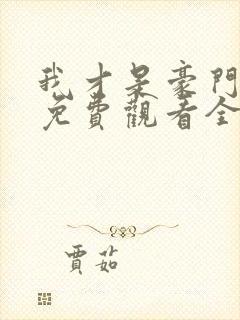 我才是豪門
免費觀看全
賈茹